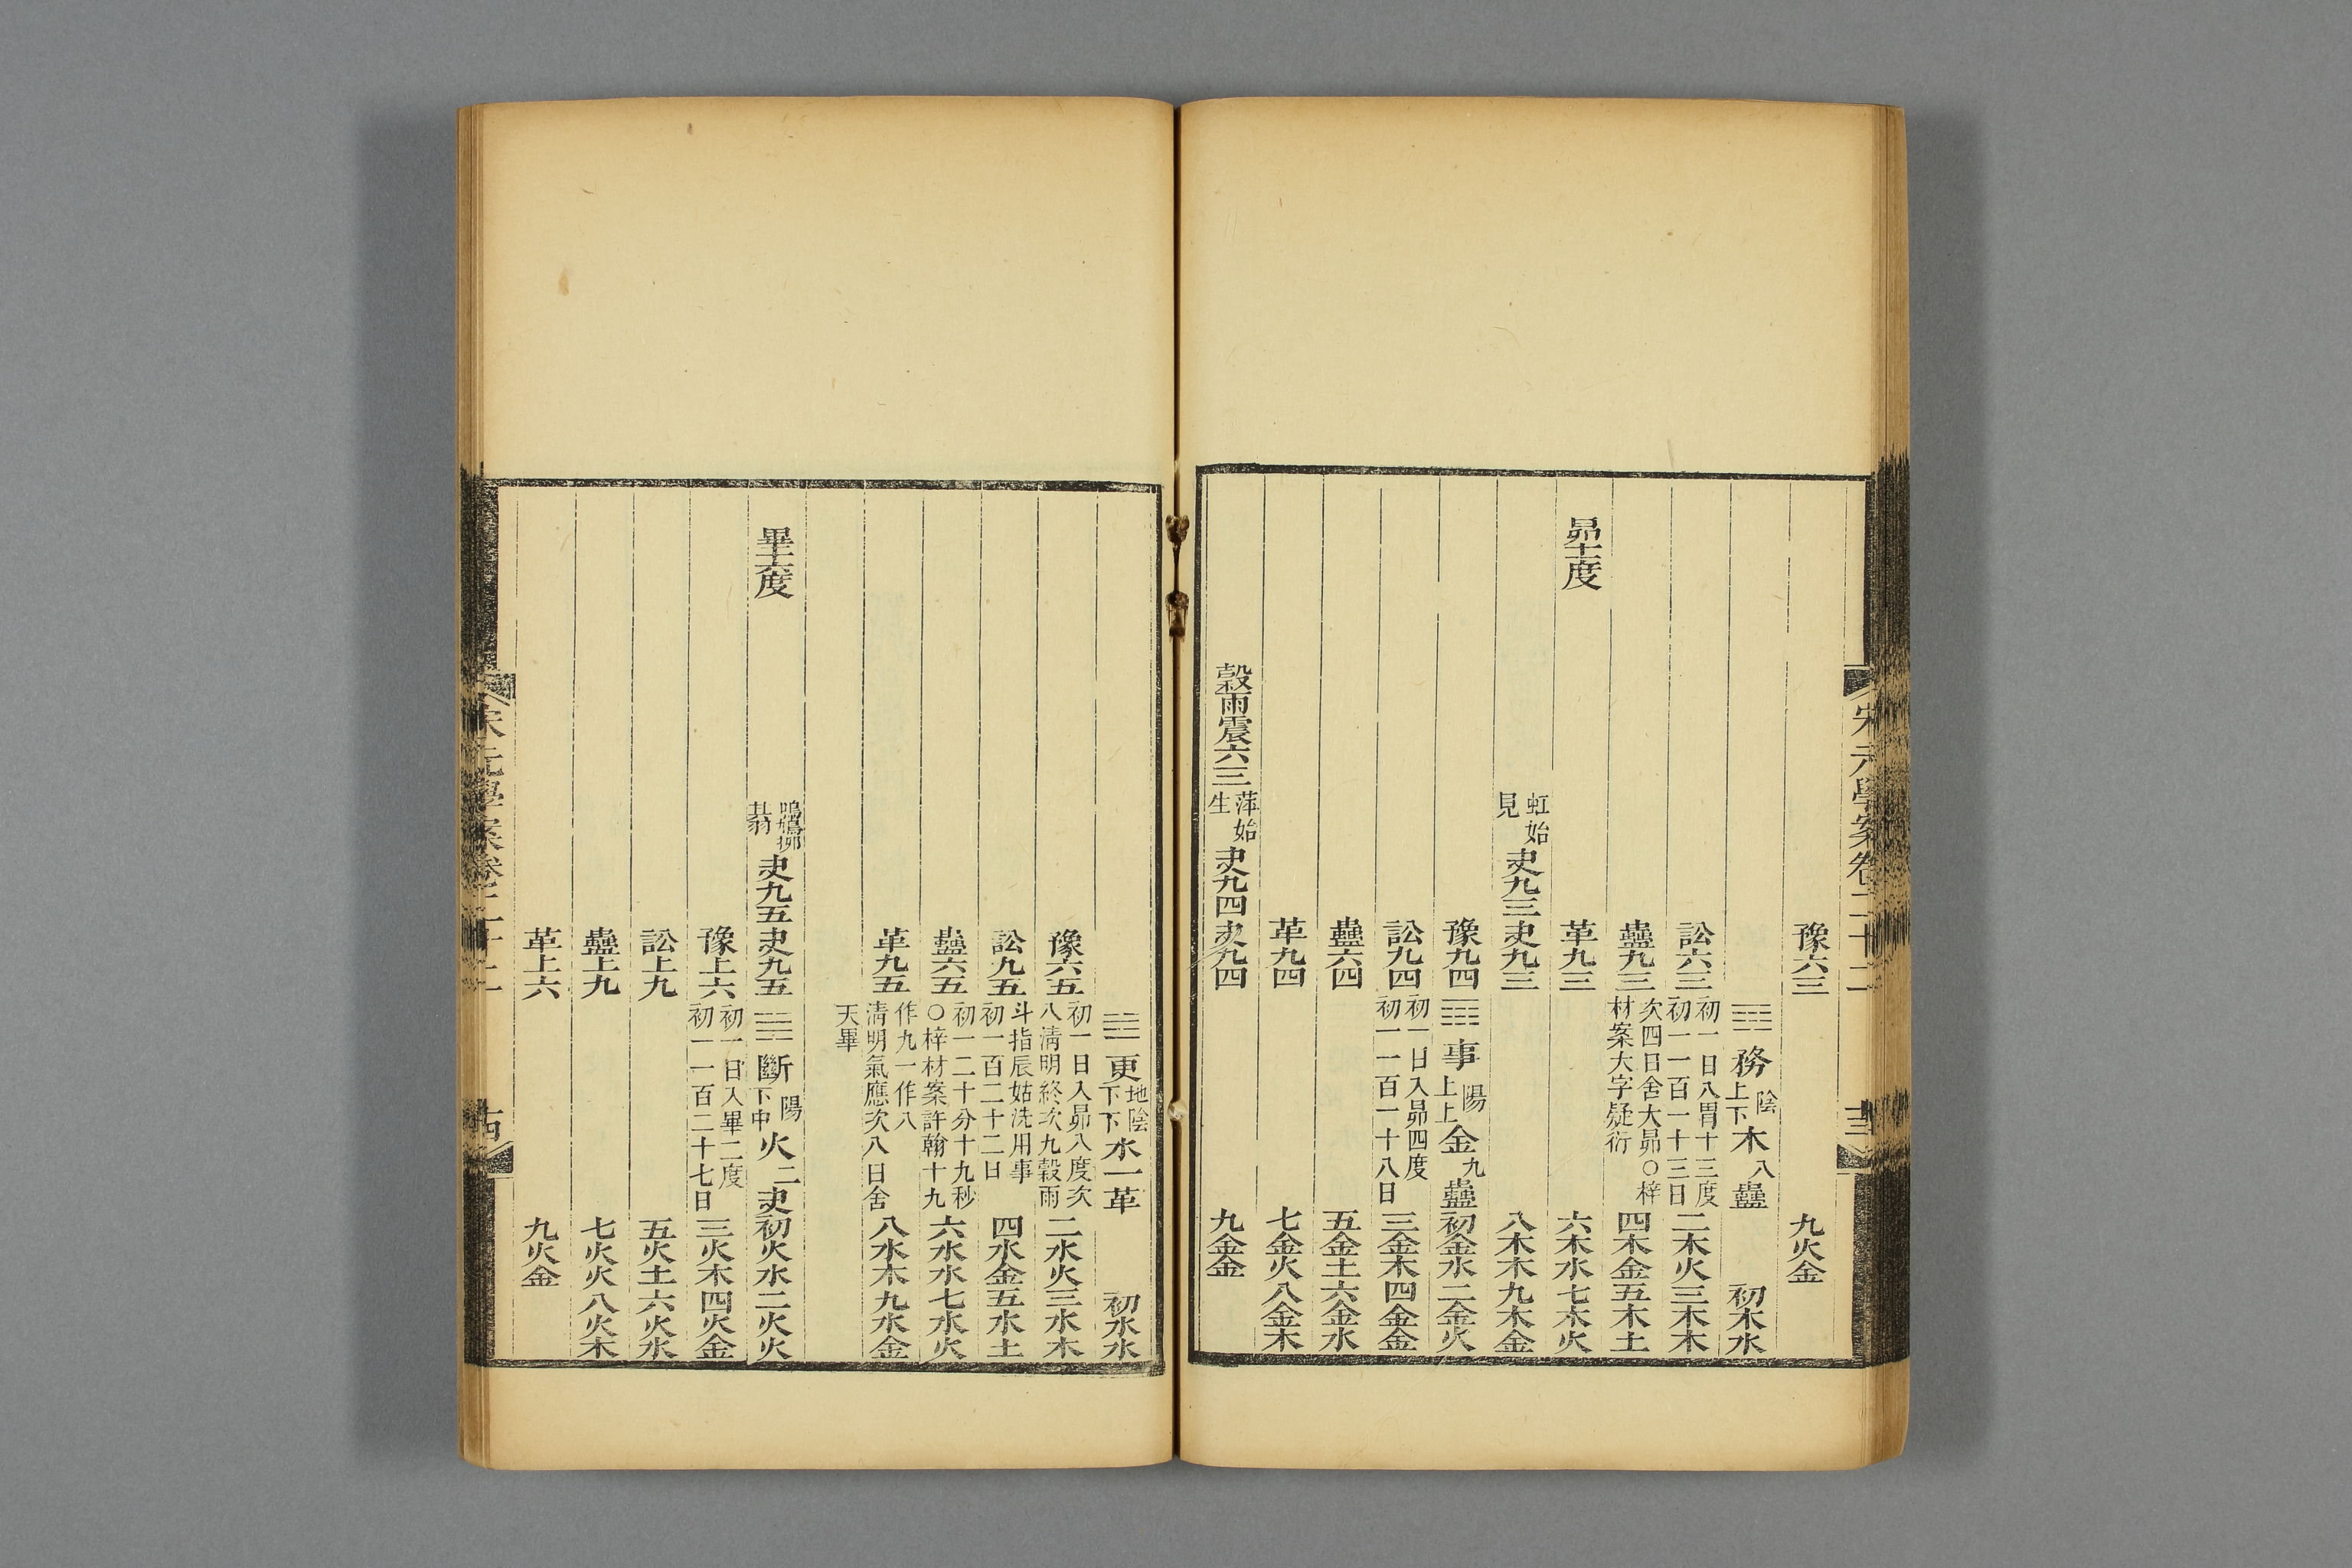 宋元學案卷二十二
十三
豫六三 九火金
𝌡 務 陰 上下 木 八 蠱 初木水
訟六三 初一日入胃十三度 初一一百一十三日 二木火三木木
蠱九三 次四日舍大昴○梓 材案大字疑衍 四木金五木土
昴十一度 革九三 六木水七木火
虹始見 夬九三夬九三 八木木九木金
豫九四 𝌢 事 陽 上上 金 九 蠱初金水二金火
訟九四 初一日入昴四度 初一一百一十八日 三金木四金金
蠱六四 五金土六金水
革九四 七金火八金木
穀雨震六三 萍始生 夬九四夬九四 九金金
𝌣 更 地陰 下下 水一革 初水水
豫六五 初一日入昴八度次 八淸明終次九穀雨 二水火三水木
訟九五 斗指辰姑洗用事 初一百二十二日 四水金五水土
蠱六五 初一二十分十九秒 ○梓材案許翰十九 六水水七水火
革九五 作九一作八 淸明氣應次八日舍 八水木九水金
天畢
畢十六度 鳴鳩拂其羽 夬九五夬九五 𝌤 斷 陽 下中 火 二夬初火水二火火
豫上六 初一日入畢二度 初一一百二十七日 三火木四火金
訟上九 五火土六火水
蠱上九 七火火八火木
革上六 九火金
宋元學案卷二十二
十四